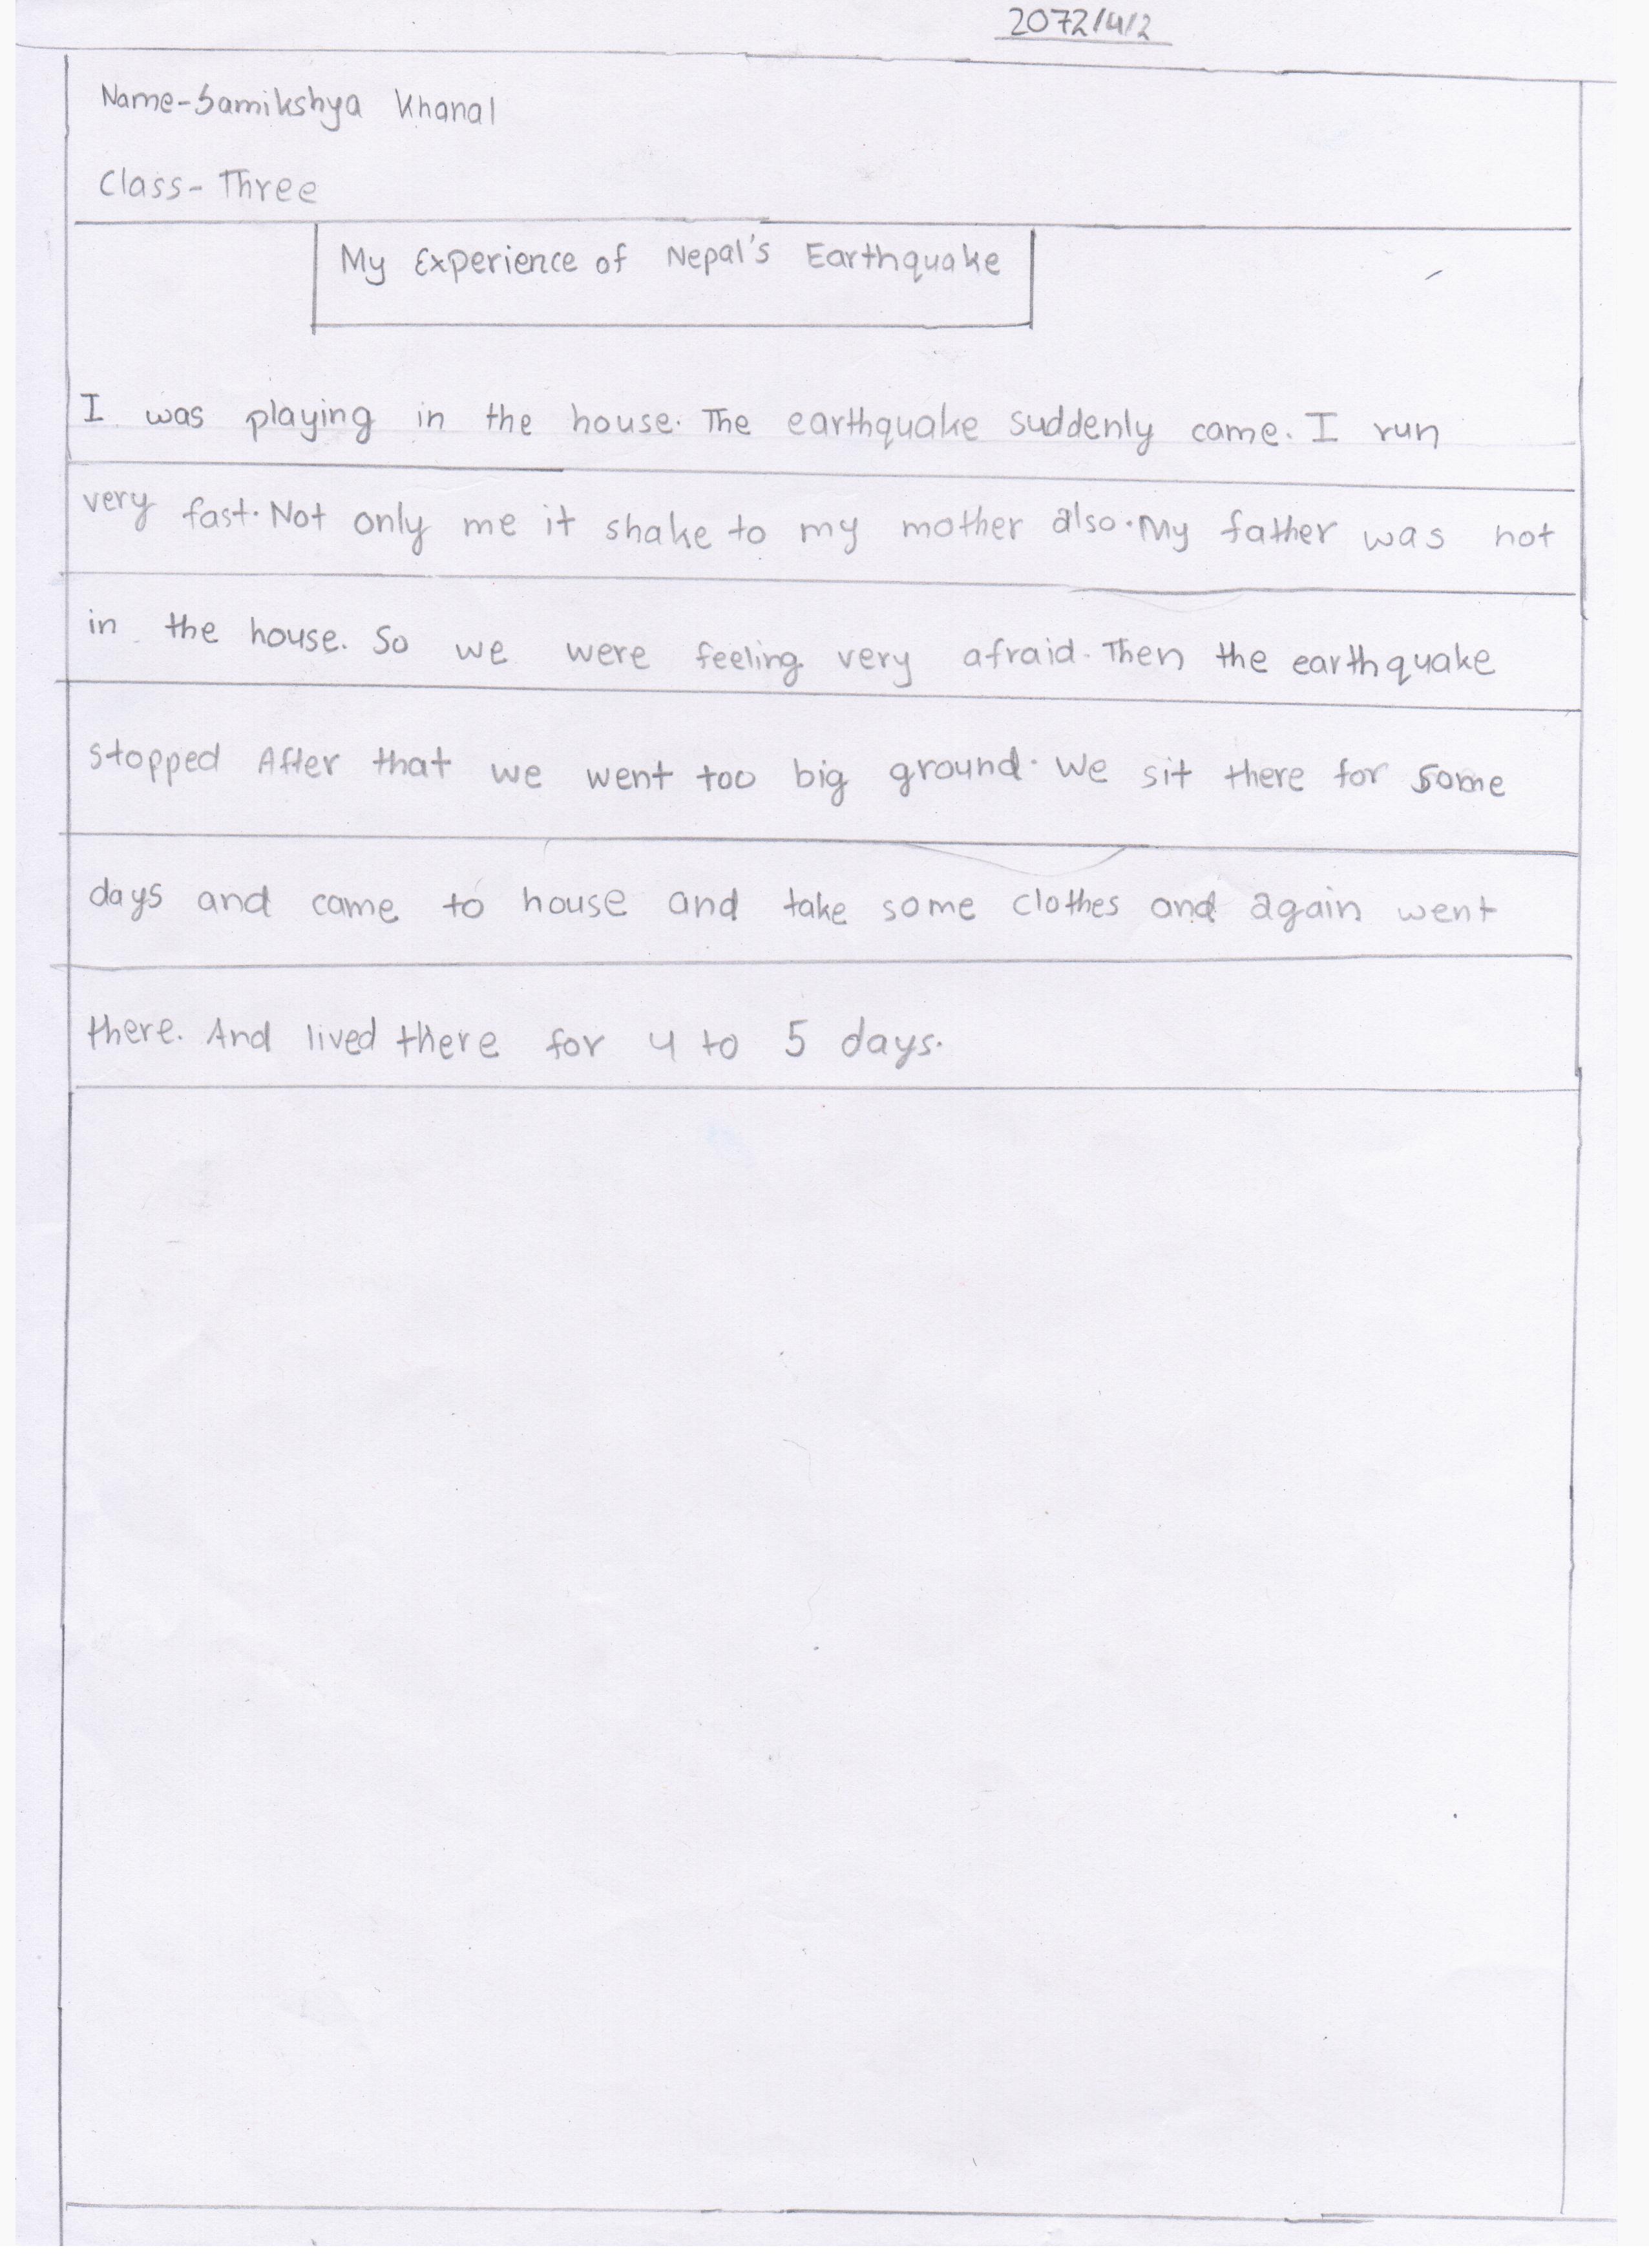 2072/4/2
Name-Samikshya Khanal
Class- Three
My Experience of Nepal's Earthquake
I was playing in the house. The earthquake suddenly came. I run
very fast. Not only me it shake to my mother also. My father was not
in the house. So we were feeling very afraid. Then the earthquake
stopped After that we went too big ground. We sit there for some
days and came to house and take some clothes and again went
there. And lived there for 4 to 5 days.